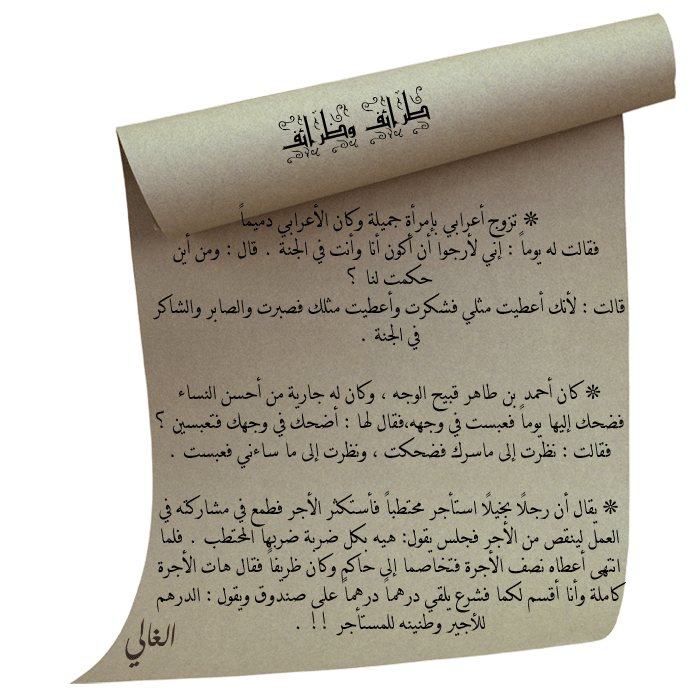 طرائف وظرائف
❊ تزوج أعرابي بإمرأة جميلة وكان الأعرابي دميماً
فقالت له يوماً : إني لأرجوا أن أكون أنا وأنت في الجنة . قال : ومن أين
حكمت لنا ؟
قالت : لأنك أعطيت مثلي فشكرت وأعطيت مثلك فصبرت والصابر والشاكر
في الجنة .
❊ كان أحمد بن طاهر قبيح الوجه ، وكان له جارية من أحسن النساء
فضحك إليها يوماً فعبست في وجهه،فقال لها : أضحك في وجهك فتعبسين ؟
فقالت : نظرت إلى ماسرك فضحكت ، ونظرت إلى ما ساءني فعبست .
❊ يقال أن رجلًا بخيلًا استأجر محتطباً فأستكثر الأجر فطمع في مشاركته في
العمل لينقص من الأجر فجلس يقول: هيه بكل ضربة ضربها المحتطب . فلما
انتهى أعطاه نصف الأجرة فتخاصما إلى حاكم وكان ظريفاً فقال هات الأجرة
كاملة وأنا أقسم لكما فشرع يلقي درهماً درهماً على صندوق ويقول : الدرهم
للأجير وطنينه للمستأجر !! .
الغالي